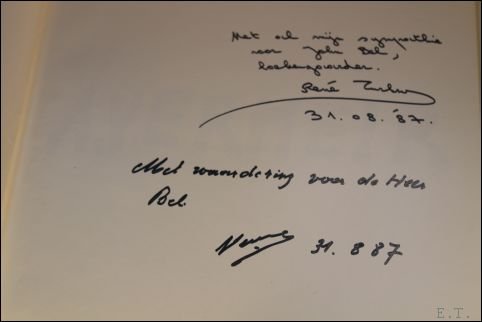 Met ook mijn sympathie
voor John Bel,
René
31.08.'87.
Met waardering voor de Heer
Bel.
31.8 87
E.T.